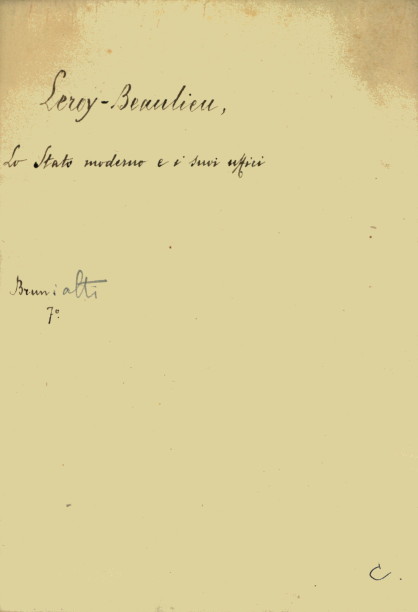 Leroy-Beaulieu,
Lo Stato moderno e i suoi uffici
Brunialti
7º.
C.